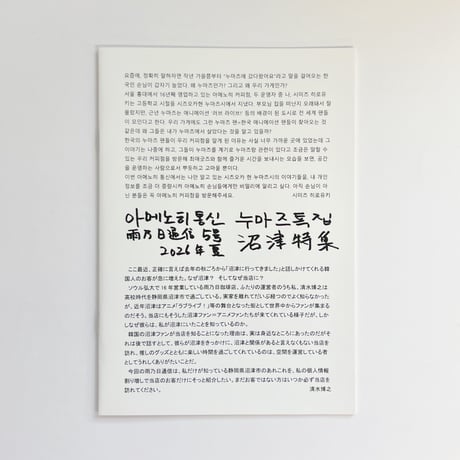 요즘에, 정확히 말하자면 작년 가을쯤부터 "누마즈에 갔다왔어요"라고 말을 걸어오는 한
국인 손님이 갑자기 늘었다. 왜 누마즈인가? 그리고 왜 우리 가게인가?
서울 홍대에서 16년째 영업하고 있는 아메노히 커피점, 두 운영자 중 나, 시미즈 히로유
키는 고등학교 시절을 시즈오카현 누마즈시에서 지냈다. 부모님 집을 떠난지 오래돼서 잘
몰랐지만, 근년 누마즈는 애니메이션 '러브 라이브!' 등의 배경이 된 도시로 전 세계 팬들
이 모인다고 한다. 우리 가게에도 그런 누마즈 팬=한국 애니메이션 팬들이 찾아오는 것
같은데 왜 그들은 내가 누마즈에서 살았다는 것을 알고 있을까?
한국의 누마즈 팬들이 우리 커피점을 알게 된 이유는 사실 너무 가까운 곳에 있었는데 그
이야기는 나중에 하고, 그들이 누마즈를 계기로 누마즈랑 관련이 있다고 조금은 말할 수
있는 우리 커피점을 방문해 최애굿즈와 함께 즐거운 시간을 보내시는 모습을 보면, 공간
을 운영하는 사람으로서 뿌듯하고 고마울 뿐이다.
이번 아메노히 통신에서는 나만 알고 있는 시즈오카 현 누마즈시의 이야기들을, 내 개인
정보를 조금 더 증량시켜 아메노히 손님들에게만 비밀리에 알리고 싶다. 아직 손님이 아
닌 분들은 꼭 아메노히 커피점을 방문해주세요. 시미즈 히로유키
아메노히통신 누마즈특집
雨乃日通信 5号 沼津特集
2026年夏
ここ最近、正確に言えば去年の秋ごろから「沼津に行ってきました」と話しかけてくれる韓
国人のお客が急に増えた。なぜ沼津？ そしてなぜ当店に？
ソウル弘大で 16 年営業している雨乃日珈琲店、ふたりの運営者のうち私、清水博之は
高校時代を静岡県沼津市で過ごしている。実家を離れてだいぶ経つのでよく知らなかった
が、近年沼津はアニメ「ラブライブ！」等の舞台となった街として世界中からファンが集まる
のだそう。当店にもそうした沼津ファン＝アニメファンたちが来てくれている様子だが、しか
しなぜ彼らは、私が沼津にいたことを知っているのか。
韓国の沼津ファンが当店を知ることになった理由は、実は身近なところにあったのだがそ
れは後で話すとして、彼らが沼津をきっかけに、沼津と関係があると言えなくもない当店を
訪れ、推しのグッズとともに楽しい時間を過ごしてくれているのは、空間を運営している者
としてうれしくありがたいことだ。
今回の雨乃日通信は、私だけが知っている静岡県沼津市のあれこれを、私の個人情報
割り増しで当店のお客だけにそっと紹介したい。まだお客ではない方はいつか必ず当店を
訪れてください。 清水博之